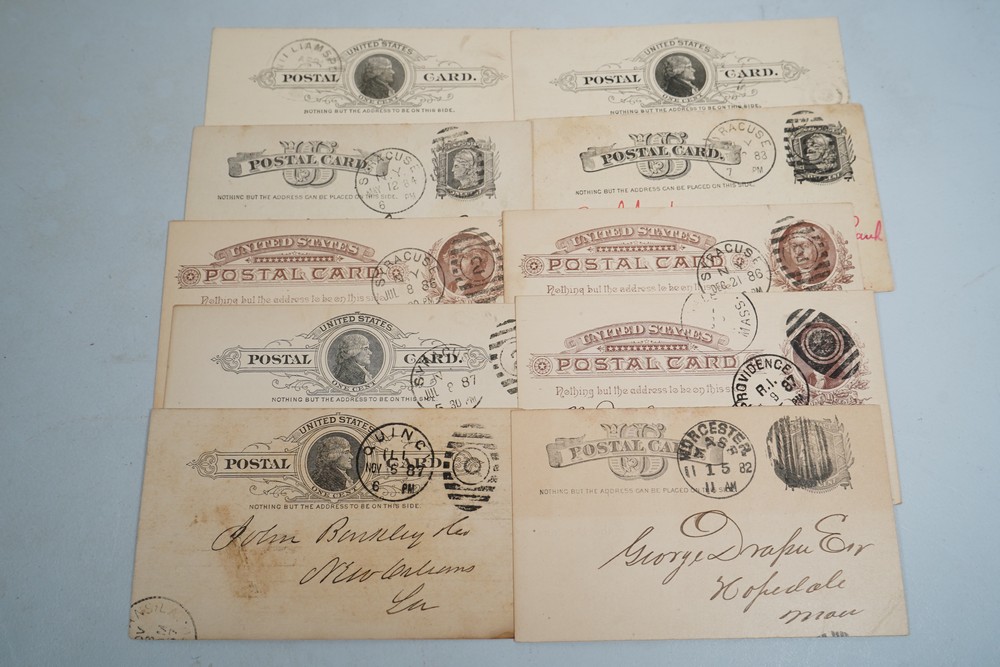 UNITED STATES
POSTAL CARD.
ONE CENT
NOTHING BUT THE ADDRESS TO BE ON THIS SIDE.
UNITED STATES
POSTAL CARD.
ONE CENT
NOTHING BUT THE ADDRESS TO BE ON THIS SIDE.
US
POSTAL CARD
NOTHING BUT THE ADDRESS CAN BE PLACED ON THIS SIDE.
SYRACUSE
N.Y.
MAY 12 84
6 PM
US
POSTAL CARD.
NOTHING BUT THE ADDRESS CAN BE PLACED ON THIS SIDE.
SYRACUSE
Y
83
7 PM
UNITED STATES
POSTAL CARD
Nothing but the address to be on this side
SYRACUSE
N.Y.
JUL 8 86
PM
2
UNITED STATES
POSTAL CARD
Nothing but the address to be on this side
SYRACUSE
N.
DEC 21 86
PM
UNITED STATES
POSTAL CARD.
ONE CENT
NOTHING BUT THE ADDRESS TO BE ON THIS SIDE.
87
5 30 PM
UNITED STATES
POSTAL CARD
Nothing but the address to be on this side
MASS.
PROVIDENCE
R.I.
9
PM
UNITED STATES
POSTAL CARD.
ONE CENT
NOTHING BUT THE ADDRESS TO BE ON THIS SIDE.
QUINCY
ILL
NOV 15 87
6 PM
John Barkley
New Orleans
La
US
POSTAL CARD
NOTHING BUT THE ADDRESS CAN BE PLACED ON THIS SIDE.
WORCESTER
MASS
11 15 82
11 AM
George Draper Esq
Hopedale
Mass